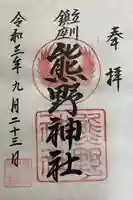 奉拝
立川
鎮座
熊野神社
令和三年九月二十三日